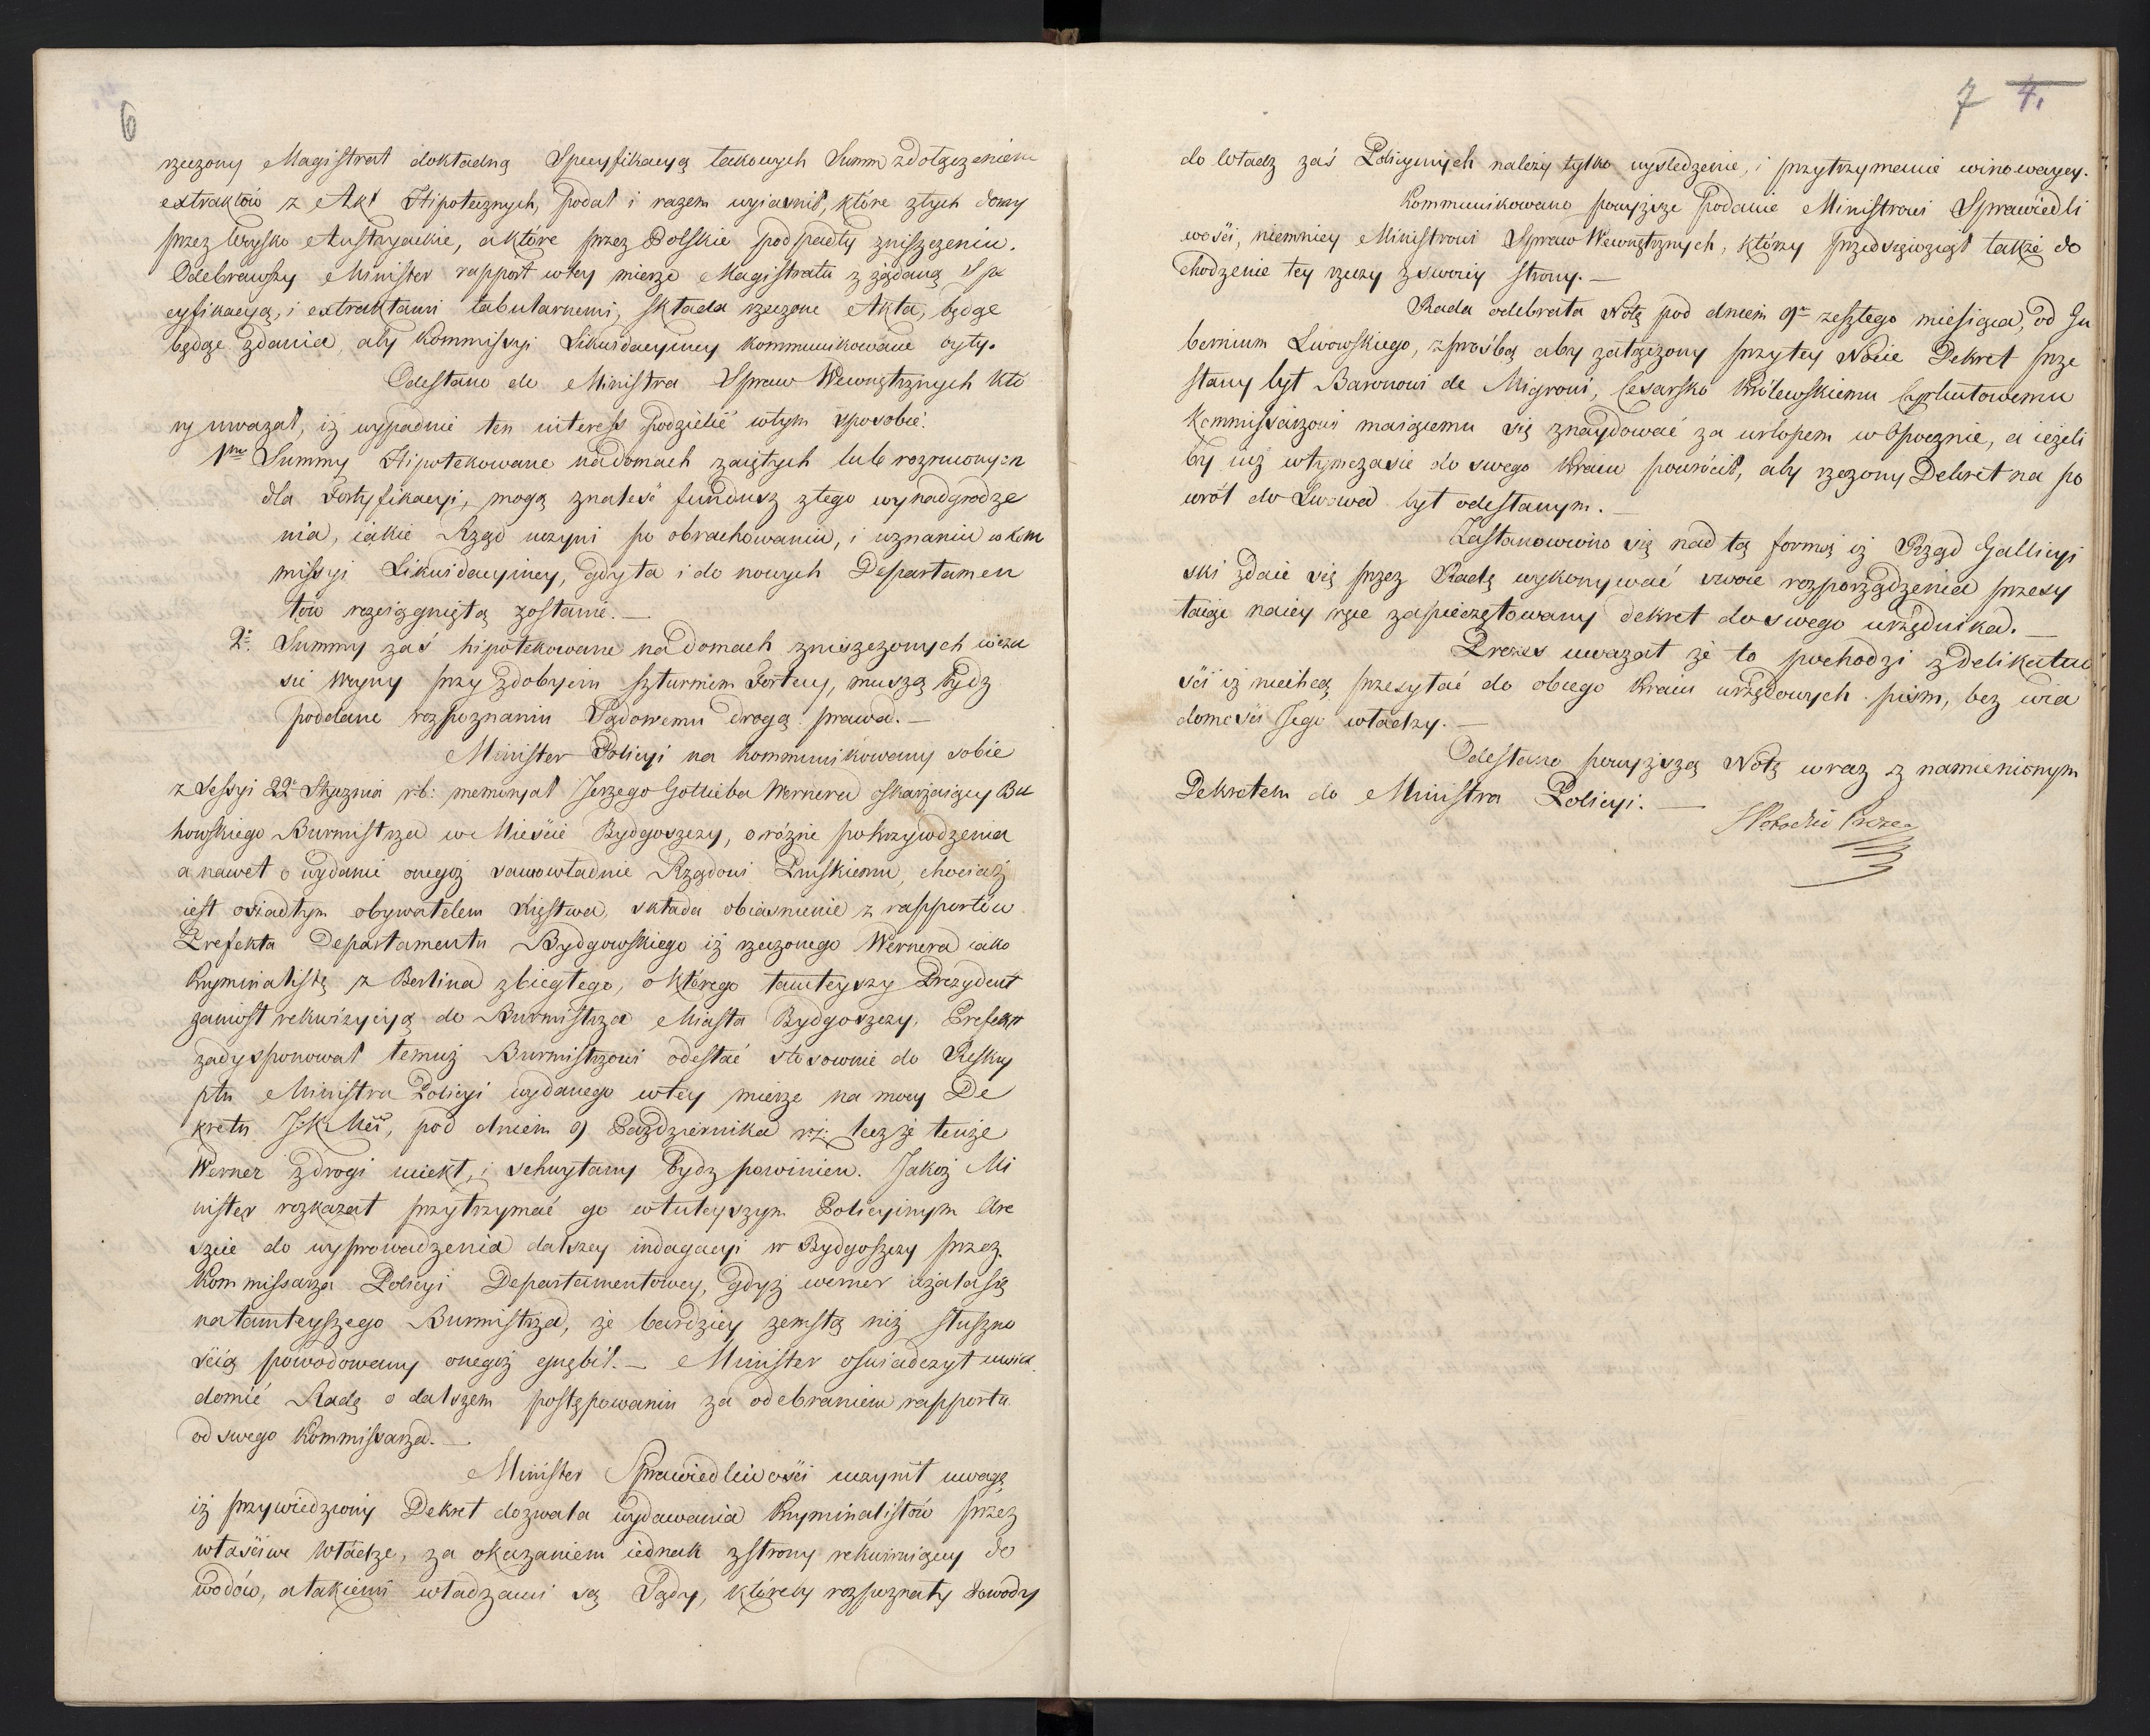 6
rzeczony Magistrat dokładną Specyfikacyą takowych Summ z dołączeniem
extraktów z Akt Hipotecznych, podał i razem wyiaśnił, które z tych domy
przez Woysko Austryackie, a które przez Polskie podpadły zniszczeniu.
Odebrawszy Minister rapport w tey mierze Magistratu z żądaną Spe
cyfikacyą, i extraktami tabularnemi, składa rzeczone Akta, będąc
będąc zdania, aby Kommissyi Likwidacyiney kommunikowane były.
Odesłano do Ministra Spraw Wewnętrznych któ
ry uważał, iż wypadnie ten interess podzielić w tym sposobie.
1mo Summy Hipotekowane na domach zaiętych lub rozrzuconych
dla Fortyfikacyi, mogą znaleść fundusz z tego wynadgrodze
nia, iakie Rząd uczyni po obrachowaniu, i uznaniu w Kom
missyi Likwidacyiney, gdy ta i do nowych Departamen
tów rozciągniętą zostanie. —
2o Summy zaś hipotekowane na domach zniszczonych w cza
sie Woyny przy zdobyciu szturmem Fortecy, muszą bydź
poddane rozpoznaniu Sądowemu drogą prawa. —
Minister Policyi na kommunikowany sobie
z Sessyi 22o Stycznia r.b: memoryał Jerzego Gottlieba Wernera oskarżaiący Bu
howskiego Burmistrza w Mieście Bydgoszczy, o różne pokrzywdzenia
a nawet o wydanie onegoż samowładnie Rządowi Pruskiemu, chociaż
iest osiadłym obywatelem Xięstwa, składa obiaśnienie z rapportów
Prefekta Departamentu Bydgowskiego iż rzeczonego Wernera iako
Kryminalistę z Berlina zbiegłego, o którego tamteyszy Prezydent
zaniósł rekwizycyą do Burmistrza Miasta Bydgoszczy, Prefekt
zadysponował temuż Burmistrzowi odesłać stosownie do Reskry
ptu Ministra Policyi wydanego w tey mierze na mocy De
kretu J.K.Mci, pod dniem 9 Października r.z: lecz że tenże
Werner z drogi uciekł, i schwytany bydź powinien. Jakoż Mi
nister rozkazał przytrzymać go w tuteyszym Policyinym Are
szcie do wyprowadzenia dalszey indagacyi w Bydgoszczy przez
Kommissarza Policyi Departamentowey, gdyż werner użala się
na tamteyszego Burmistrza, że bardziey zemstą niż słuszno
ścią powodowany onegoż gnębił. — Minister oświadczył uwia
domić Radę o dalszem postępowaniu za odebraniem rapportu
od swego Kommissarza. —
Minister Sprawiedliwości uczynił uwagę
iż przywiedziony Dekret dozwala wydawania Kryminalistów przez
właściwe Władze, za okazaniem iednak z strony rekwiruiącey do
wodów, a takiemi władzami są Sądy, któreby rozpoznały dowody
7 4.
do Władz zaś Policyinych należy tylko wyśledzenie, i przytrzymanie winowaycy.
Kommunikowano powyższe podanie Ministrowi Sprawiedli
wości, niemniey Ministrowi Spraw Wewnętrznych, którzy przedsięwziął także do
chodzenie tey rzeczy z swoiey strony. —
Rada odebrała Notę pod dniem 9m zeszłego miesiąca, od Gu
bernium Lwowskiego, z prośbą aby załączony przy tey Nocie Dekret prze
słany był Baronowi de Migroni, Cesarsko Królewskiemu Cyrkułowemu
Kommissarzowi maiącemu się znaydować za urlopem w Opocznie, a ieżeli
by iuż w tymczasie do swego Kraiu powrócił, aby rzeczony Dekret na po
wrót do Lwowa był odesłanym. —
Zastanowiono się nad tą formą iż Rząd Gallicyi
ski zdaie się przez Radę wykonywać swoie rozporządzenia przesy
łaiąc na iey ręce zapieczętowany dekret do swego urzędnika. —
Prezes uważał że to pochodzi z delikatno
ści iż niechcą przesyłać do obcego Kraiu urzędowych pism, bez wia
domości Jego władzy. —
Odesłano powyższą Notę wraz z namienionym
Dekretem do Ministra Policyi. —